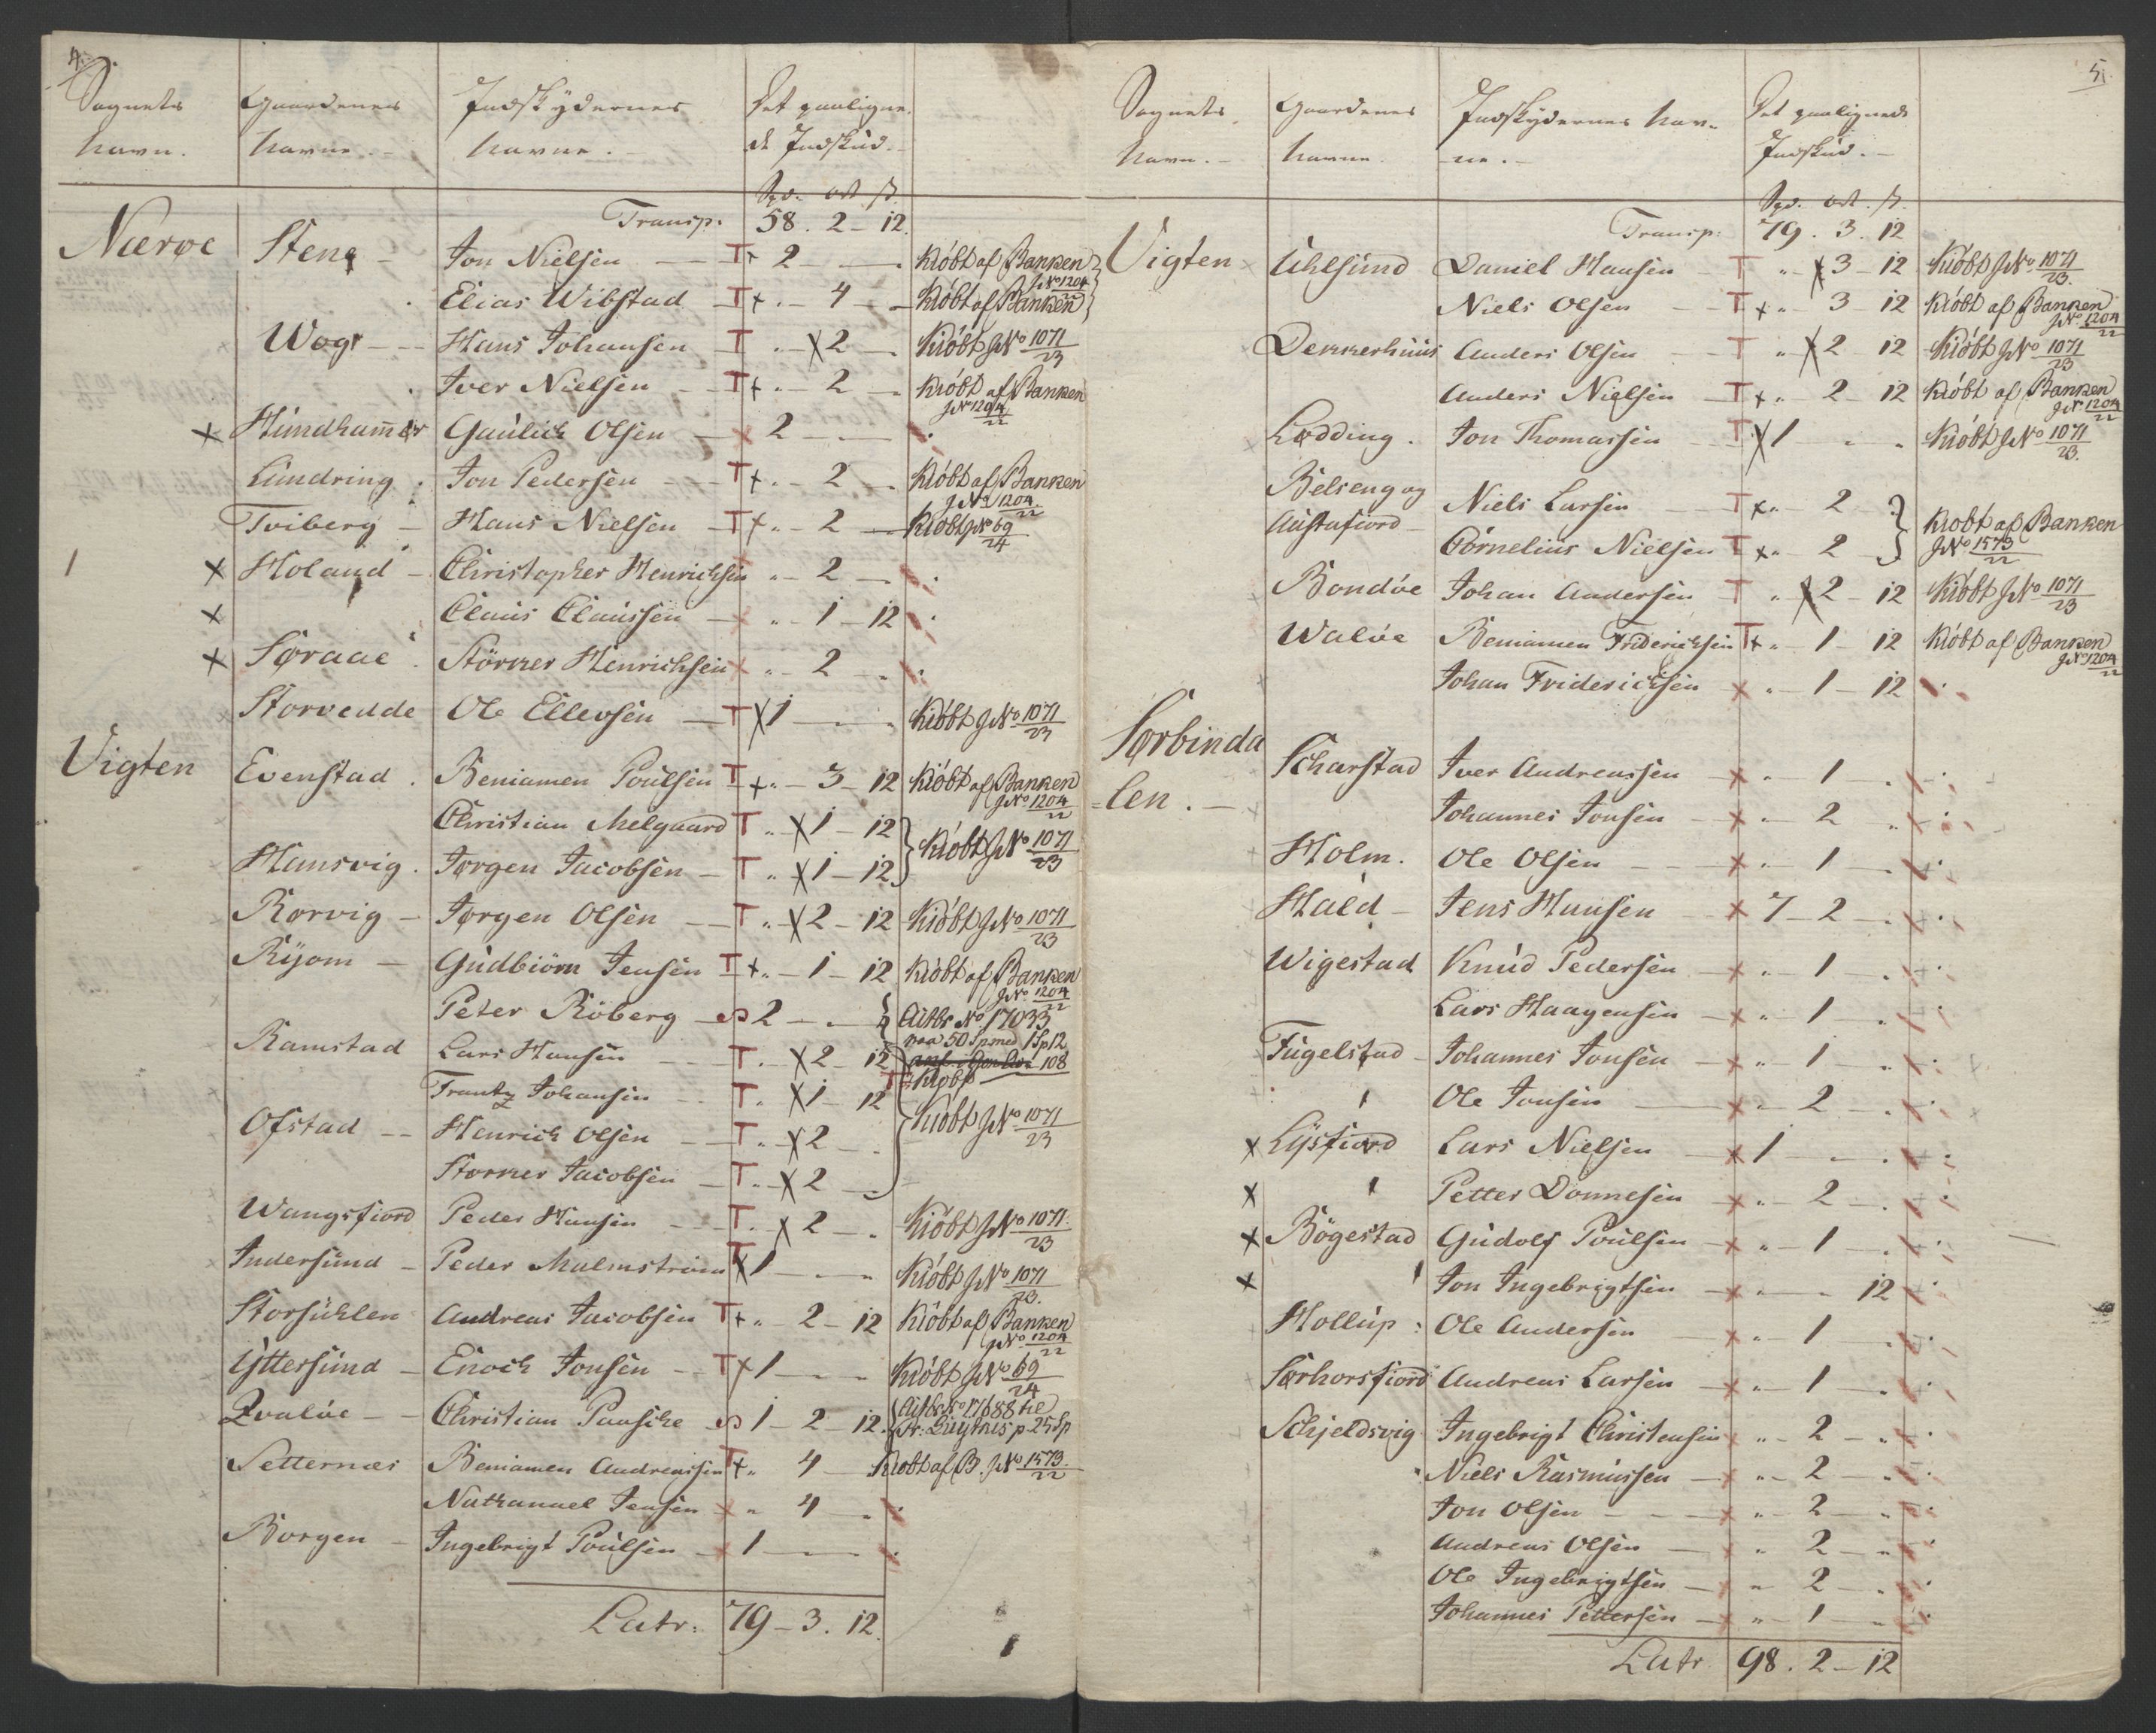 4.
Sognets Gaardenes Indskydernes Det paaligne-
Navn. Navne. Navne. de Indskud.
Spd. ort. ß.
Transp. 58. 2 - 12.
Nærøe Steng - Jon Nielsen - T+ 2 - Kiöbt af Banken
Elias Wibstad T+ " - 4 - Kiöbt af Banken } J No 1204/22
Wog - Hans Johansen T " - X 2 - Kiöbt J No 1071/23
Iver Nielsen - T+ " - 2 - Kiöbt af Banken
J No 1204/22
x Hundhammer Gaulich Olsen - x 2 -
Lundring Jon Pedersen - T+ " - 2 - Kiöbt af Banken
J No 1204/22
Tviberg - Hans Nielsen - T+ " - 2 - Kiöbt J No 69/24
1 x Holand - Christopher Henrichsen " - 2 -
x Claus Claussen - x " - 1 - 12
x Søraae Störker Henrichsen x " - 2 -
Storvedde Ole Ellevsen - T X 1 - Kiöbt J No 1071/23
Vigten Evenstad. Beniamen Poulsen T+ " - 3 - 12 Kiöbt af Banken
J No 1204/22
Christian Melgaard T " X 1 - 12
Hansvig. Jørgen Jacobsen - T " X 1 - 12 } Kiöbt J No 1071/23
Rørvig - Jørgen Olsen - T " X 2 - 12 Kiöbt J No 1071/23
Ryom - Gudbiörn Jensen T+ " - 1 - 12 Kiöbt af Banken
J No 1204/22
Peter Röberg - 2 - Actbr No 17033
paa 50 Sp med 1 Sp 12
Ramstad Lars Hansen - T. X 2 - 12 108
Kiöbt
Frantz Johansen - T. X 1 - 12
Ofstad - Henrich Olsen - T " X 2 - Kiöbt J No 1071/23
Størker Jacobsen - T " X 2 -
Wangsfiord Peder Hansen - T. X 2 - Kiöbt J No 1071/23
Indersund - Peder Malmstrøm T X 1 - Kiöbt J No 1071/23.
Storsuhlen Andreas Jacobsen T+ " 2 - 12 Kiöbt af Banken
J No 1204/22
Yttersund - Enoch Jonsen - T+ 1 - Kiöbt J No 69/24
Qvaløe - Christian Pausche 1 - 2 - 12. Actbr No 17688 til
Fr: p. 25 Sp
Setternes Beniamen Andreassen T+ " 4 - Kiobt af B. J No 1573/22
Nathanael Jensen x " 4 -
Borgen - Ingebrigt Poulsen - x 1 -
Latr: 79 - 3. 12.
5.
Sognets Gaardenes Indskydernes Nav- Det paalignede
Navn. - Navne. ne. - Indskud. -
Spd. ort. ß.
Transp: 79. 3. 12
Vigten Uhlsund Daniel Hansen T " X 3 - 12 Kiöbt J No 1071/23.
Niels Olsen - T + " 3 - 12 Kiöbt af Banken
J No 1204/22
Dekkerhuus Anders Olsen - T " X 2 - 12 Kiöbt J No 1071/23
Anders Nielsen - T + " 2 - 12 Kiöbt af Banken
J No 1204/22
Lødding. Jon Thomassen - T X 1 - Kiöbt J No 1071/23.
Belseng og Niels Larsen - T x " 2 -
Austafiord Cornelius Nielsen T x " 2 - } Kiobt af Banken
J No 1573/22
Bondøe Johan Andersen - T " X 2 - 12 Kiöbt J No 1071/23
Waløe Beniamen Friderichsen T+ " 1 - 12 Kiöbt af Banken
J No 1204/22
Johan Friderichsen x " - 1 - 12
Sørbinda Scharstad Iver Andreassen x " - 1 -
=len. - Johannes Jonsen - x " - 2
Holm. Ole Olsen - x " - 1 -
Hald - Jens Hansen - x 7 - 2 -
Wigestad Knud Pedersen - x " - 1 -
Lars Haagensen - x " - 1 -
Fugelstad - Johannes Jonsen - x " - 1 -
Ole Jonsen - x " - 2 -
x Lysfiord Lars Nielsen - x 1 -
x Petter Donnesen - x " - 2 -
x Bögestad Gudolf Poulsen - x " - 1 -
x Jon Ingebrigtsen - x " - 12
Hollup: Ole Andersen - x " - 1
Sørhorsfiord Andreas Larsen - x " - 1 -
Schjeldsvig Ingebrigt Christensen x " - 2 -
Niels Rasmussen - x " - 2 -
Jon Olsen - x " - 2 -
Andreas Olsen - x " 2 -
Ole Ingebrigtsen - x " 2 -
Johannes Pettersen - x " - 1 -
Latr 98. 2 - 12